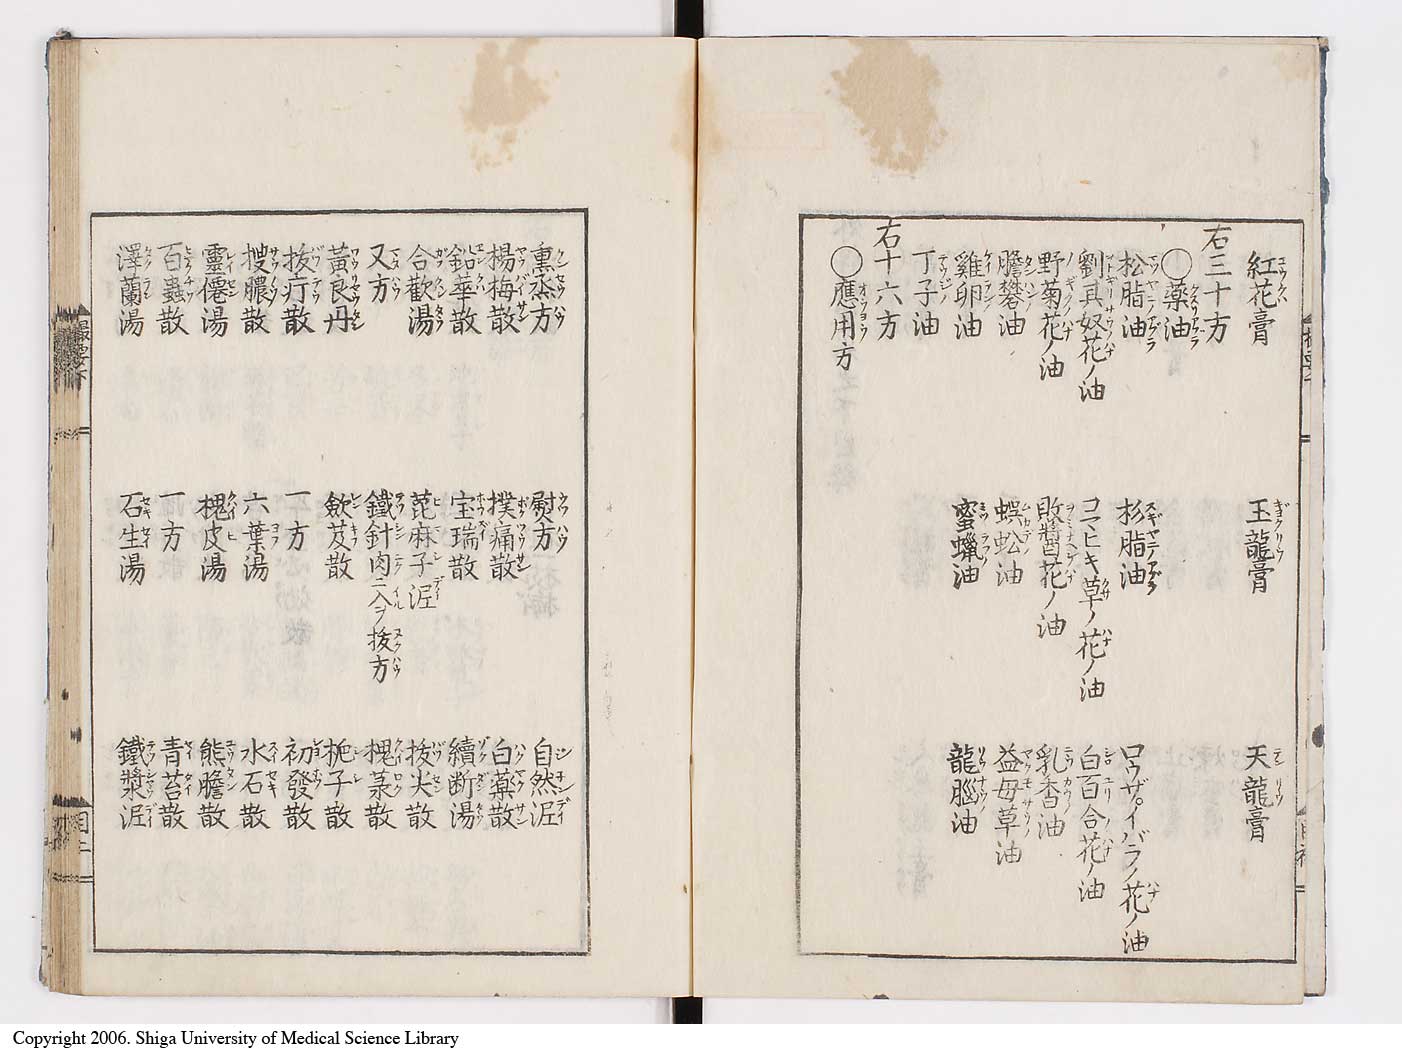 紅花膏　玉龍膏　天龍膏
右三十方
○藥油
松脂油　杉脂油　ロウザイバラノ花ノ油
劉其奴花ノ油　コマヒキ草ノ花ノ油　白百合花ノ油
野菊花ノ油　敗醬花ノ油　乳香油
膽礬油　蜈蚣油　益母草油
雞卵油　蜜蠟油　龍腦油
丁子油
右十六方
○應用方
熏烝方　熨方　自然泥
楊梅散　撲痛散　白藥散
鉛華散　宝瑞散　續断湯
合歡湯　萞麻子泥　拔尖散
又方　鐵針肉ニ入ヲ拔方　槐彔散
黃良丹　歛芨散　梔子散
拔疔散　一方　初發散
搜膿散　六葉湯　水石散
靈僊湯　槐皮湯　熊膽散
百蟲散　一方　青苔散
澤蘭湯　石生湯　鐵漿泥
撮要下
目二
Copyright 2006. Shiga University of Medical Science Library